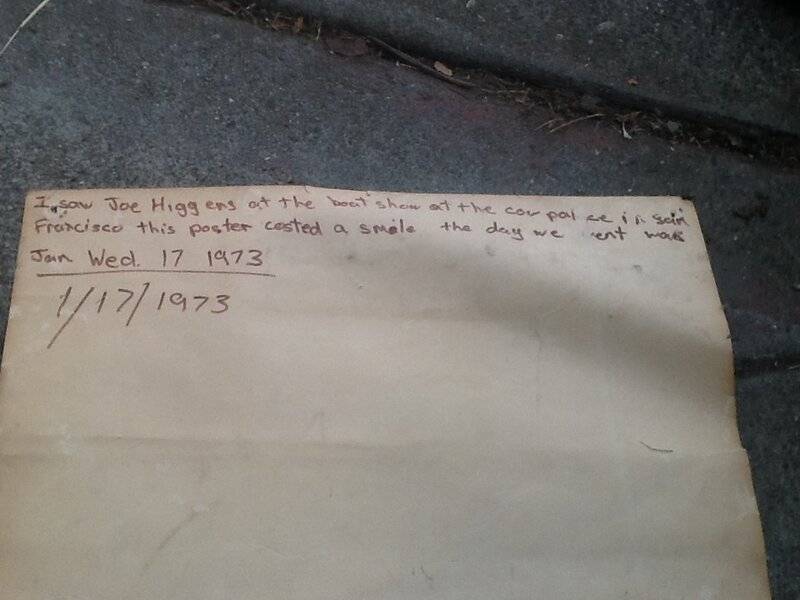 I saw Joe Higgens at the boat show at the cow palace in san
Francisco this poster costed a smile the day we went was
Jan Wed. 17 1973
1/17/1973